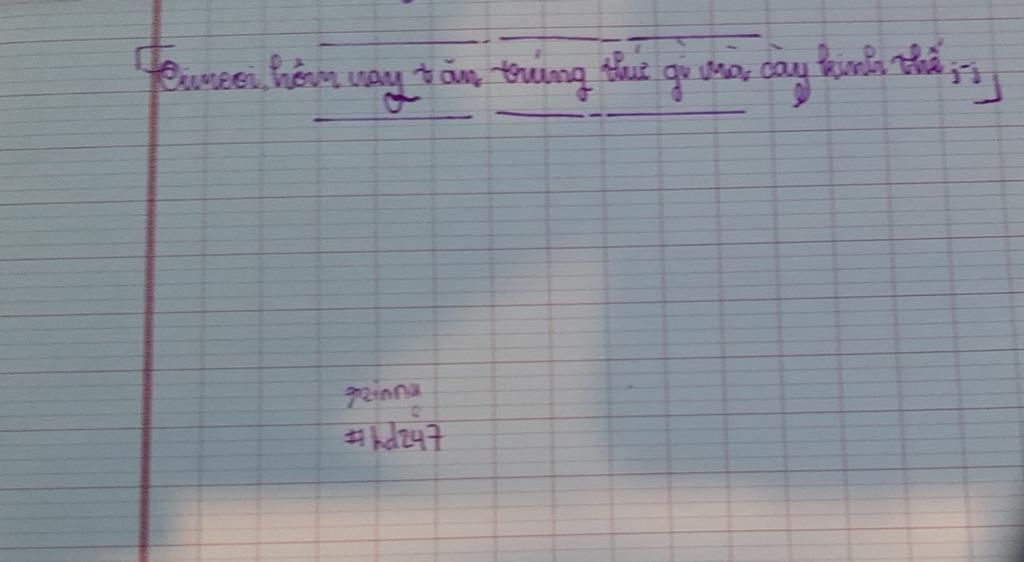 「Eimeei, hôm nay t ăn trúng thứ gì mà cay kinh thế ;-;」
gzinna
#hd247